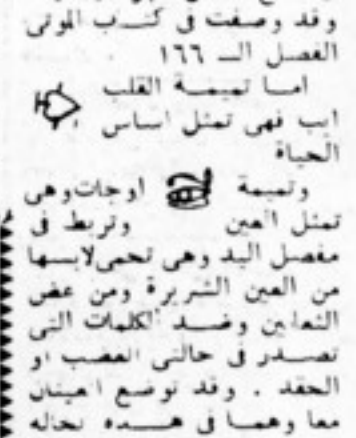 وقد وصفت فى كتــاب الموتى
الفصل الــ ١٦٦
امــا تميمــة القلب
ايب فهى تمثل اساس
الحياة
وتميمة اوجات وهى
تمثل العين وتربط فى
مفصل اليد وهى تحمى لابسها
من العين الشريرة ومن عض
الثعابين وضــد الكلمات التى
تصــدر فى حالتى الغضب او
الحقد . وقد توضع العينان
معا وهمــا فى هــذه الحاله